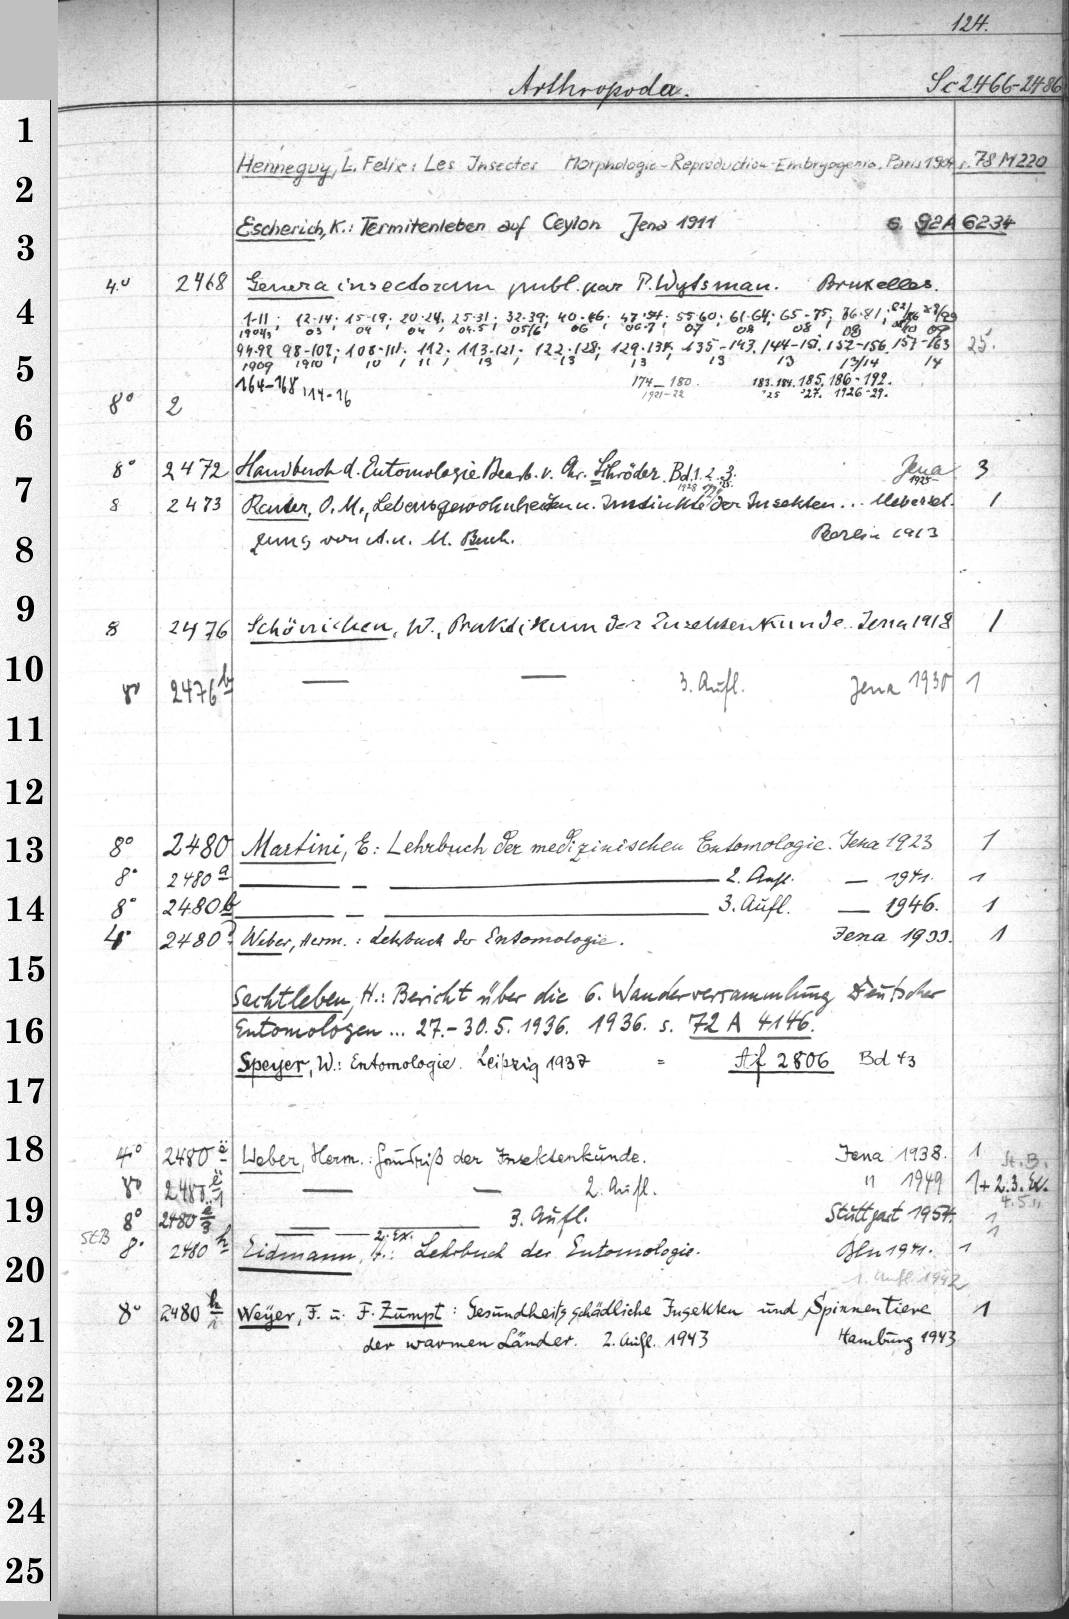 124.
Arthropoda. Sc 2466-2486
1
Henneguy, L. Felix: Les Insectes Morphologie-Reproduction-Embryogenie. Paris 1904 s. 78 M 220
2
Escherich, K.: Termitenleben auf Ceylon Jena 1911 s. 92 A 6234
3
4.° 2468 Genera insectorum publ. par P. Wytsman. Bruxelles.
4
1-11; 12-14; 15-19; 20-24; 25-31; 32-39; 40-46; 47-54; 55-60; 61-64; 65-75; 76-81;
98-107; 108-111; 112; 113-121; 122-128; 129-134; 135-143. 144-151. 152-156. 157-163 25.
5
1909 1910 10 11 13 13 13 13 13 13/14 14
164-168 '14-16 174-180. 183. 184. 185. 186-192.
1921-22 '25 '27. 1926-29.
8° 2
6
8° 2472 Handbuch d. Entomologie Bearb. v. Chr. Schröder. Bd. 1. 2. 3. Jena 3
7
1928 1925
8 2473 Reuter, O. M., Lebensgewohnheiten u. Instinkte der Insekten... Ueberset- 1
zung von A. u. M. Buch. Berlin 1913
8
9
8 2476 Schönichen, W., Praktikum der Insektenkunde. Jena 1918 1
10
8° 2476 b — — 3. Aufl. Jena 1930 1
11
12
13
8° 2480 Martini, E: Lehrbuch der medizinischen Entomologie. Jena 1923 1
8° 2480 a — — — 2. Aufl. — 1941. 1
14
8° 2480 b — — — 3. Aufl. — 1946. 1
4° 2480 Weber, Herm.: Lehrbuch der Entomologie. Jena 1933. 1
15
Sachtleben, H.: Bericht über die 6. Wanderversammlung Deutscher
16
Entomologen ... 27.-30.5.1936. 1936. s. 72 A 4146.
Speyer, W.: Entomologie. Leipzig 1937 = Af 2806 Bd 43
17
18
4° 2480 e Weber, Herm.: Grundriß der Insektenkunde. Jena 1938. 1
St. B.
8° 2480 e/1 — — 2. Aufl. " 1949 1 + 2. 3. Ex.
4. 5. "
19
8° 2480 e/3 — — 3. Aufl. Stuttgart 1954. 1
StB 2. Ex. 1
8° 2480 h Eidmann, H.: Lehrbuch der Entomologie. Bln 1941. 1
20
1. Aufl. 1942
8° 2480 h/1 Weyer, F. u. F. Zumpt: Gesundheitsschädliche Insekten und Spinnentiere 1
21
der warmen Länder. 2. Aufl. 1943 Hamburg 1943
22
23
24
25